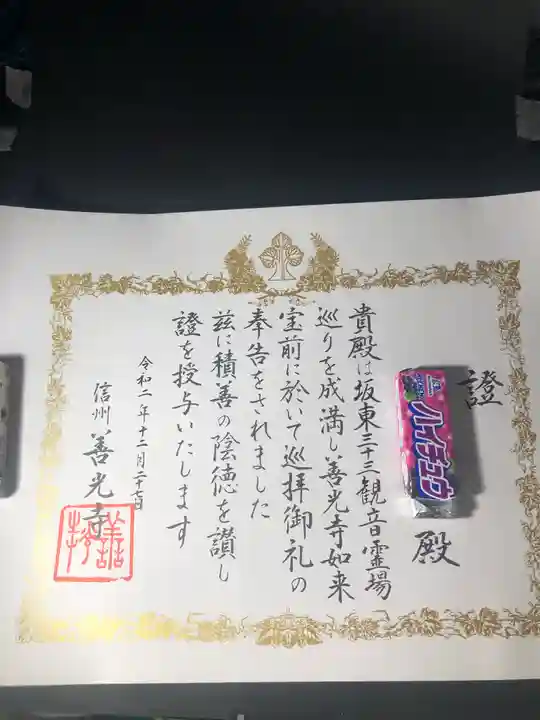 證
ハイチュウ
殿
貴殿は坂東三十三観音霊場
巡りを成満し善光寺如来
宝前に於いて巡拝御礼の
奉告をされました
茲に積善の陰徳を讃し
證を授与いたします
令和二年十二月二十七日
信州 善光寺